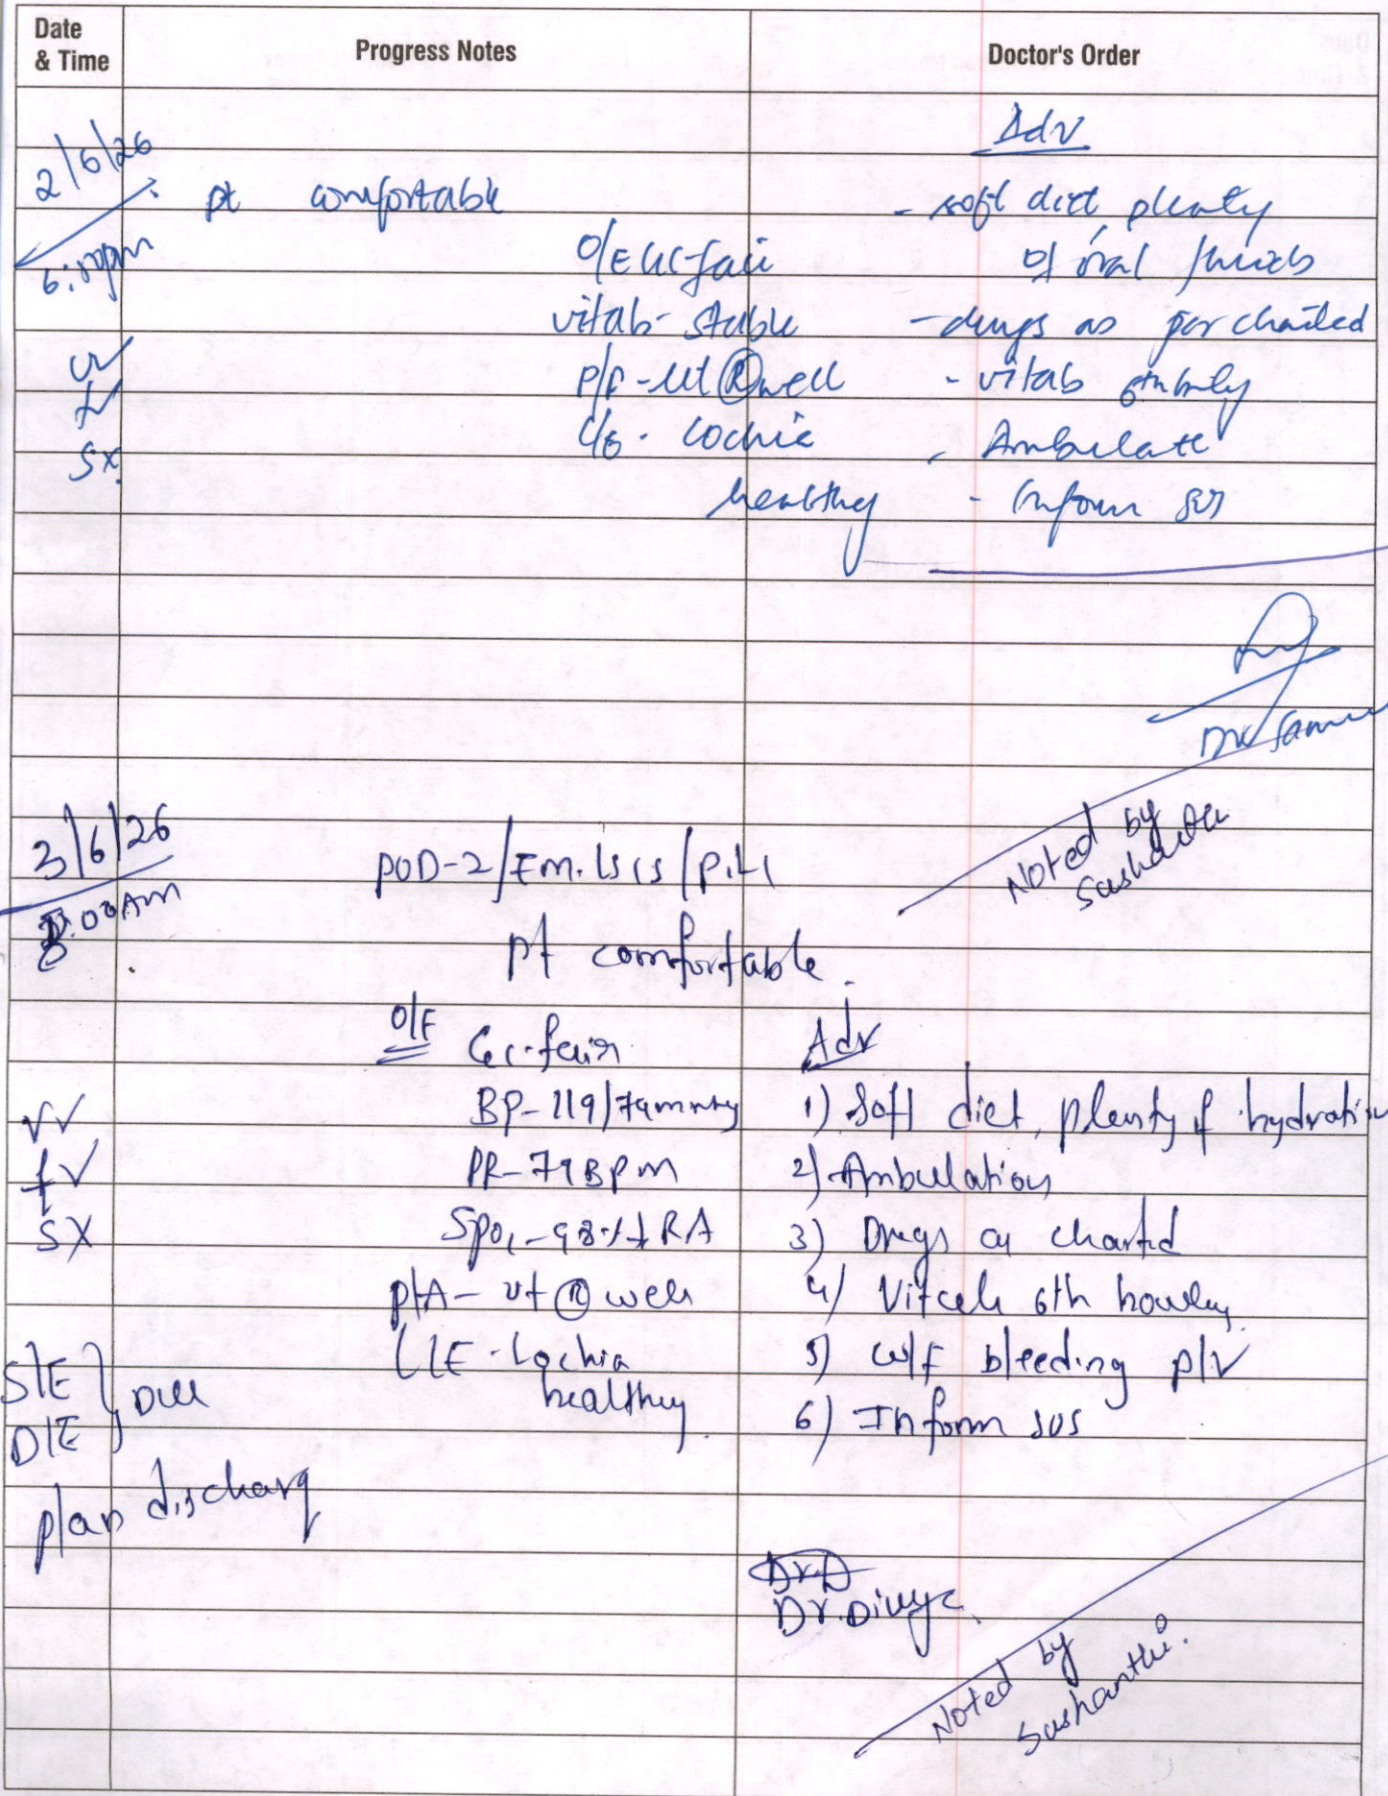 Date & Time
Progress Notes
Doctor's Order
2/6/26
6:00pm
pt comfortable
O/E GC-fair
vitals- stable
P/A -ut Ⓡ well
L/E - Lochia
healthy
U✓
F✓
Sx
Adv
- soft diet, plenty
of oral fluids
- drugs as per charted
- vitals 6th hrly
- Ambulate
- Inform SOS
Noted by
3/6/26
8:00AM
POD-2/Em.LSCS/P1L1
pt comfortable.
O/E GC-fair
BP-119/79mmHg
PR-79BPM
SpO2-98% RA
P/A- ut Ⓡ well
L/E - Lochia
healthy.
V✓
F✓
SX
S/E } Dull
D/E
plan discharg
Adv
1) Soft diet, plenty of hydration
2) Ambulation
3) Drugs as charted
4) Vitals 6th hourly
5) W/F bleeding P/V
6) Inform SOS
Dr.D
Dr.Divya.
Noted by
Sushanthi.